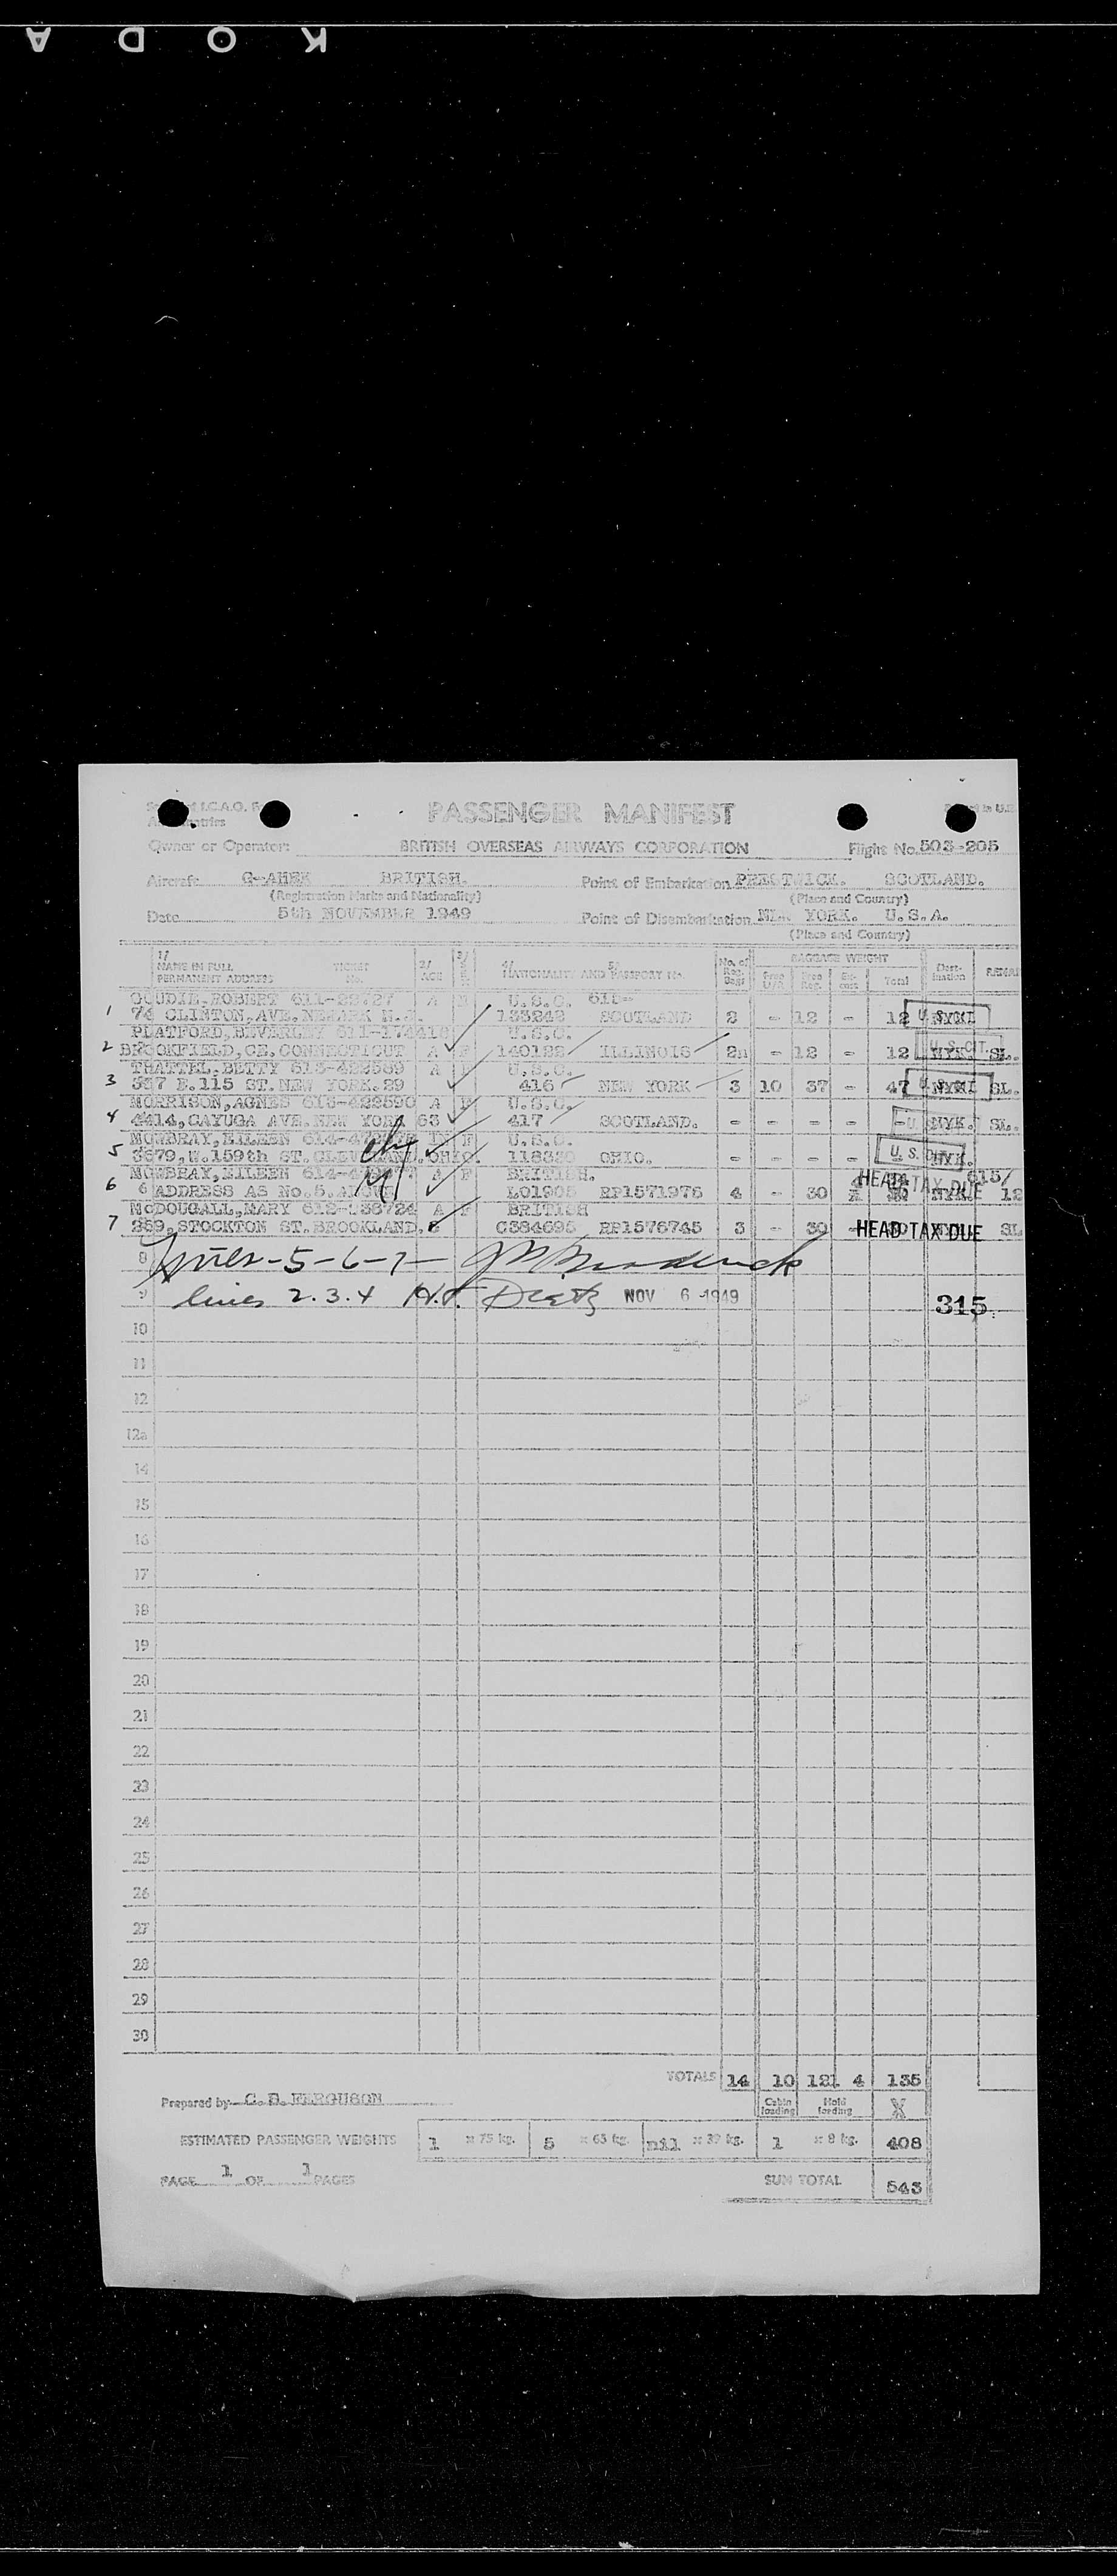 KODA
PASSENGER MANIFEST
Owner or Operator: BRITISH OVERSEAS AIRWAYS CORPORATION Flight No. 503-205
Aircraft G-AHEK BRITISH. Point of Embarkation PRESTWICK. SCOTLAND.
(Registration Marks and Nationality) (Place and Country)
Date 5th NOVEMBER 1949 Point of Disembarkation YORK. U.S.A.
(Place and Country)
1/ NAME IN FULL PERMANENT ADDRESS TICKET No. 2/ AGE 3/ 4/ NATIONALITY AND 5/ PASSPORT No. No. of Reg. Bags BAGGAGE WEIGHT Free Free Reg. Total Destination
GOUDIE.ROBERT 611-22727 A U.S.C. 615-
1 74 CLINTON.AVE.NEWARK N.J. 133242 SCOTLAND 2 - 12 - 12
PLATFORD,BEVERLEY 611-174410 U.S.C.
2 BROOKFIELD,CE.CONNECTICUT A F 140122 ILLINOIS 2 - 12 - 12 NYK. SL.
THATTEL.BETTY 613-422589 A U.S.C.
3 537 E.115 ST.NEW YORK.29 416 NEW YORK 3 10 37 - 47 SL.
MORRISON,AGNES 613-422590 A F U.S.C.
4 4414,CAYUGA AVE.NEW YORK 63 417 SCOTLAND. - - - - - NYK. SL.
MOWBRAY,EILEEN F U.S.C.
5 3679,W.159th ST.CLEVELAND.OHIO. OHIO. - - - - - NYK.
MOWBRAY,EILEEN A F BRITISH. HEAD TAX DUE
6 6 ADDRESS AS No.5. L01905 RP1571976 4 - 30 12
McDOUGALL,MARY A F BRITISH
7 259,STOCKTON ST.BROOKLAND. C384695 RP1576745 3 - 30 HEAD TAX DUE SL
8 lines-5-6-7-
9 lines 2.3.4 NOV 6 1949 315
10
11
12
12a
14
15
16
17
18
19
20
21
22
23
24
25
26
27
28
29
30
TOTALS 14 10 121 4 135
Prepared by C.D.FERGUSON Cabin loading Hold loading X
ESTIMATED PASSENGER WEIGHTS 1 x 75 kg. 5 x 65 kg. nil x 39 kg. 1 x 8 kg. 408
PAGE 1 OF 1 PAGES SUM TOTAL 543